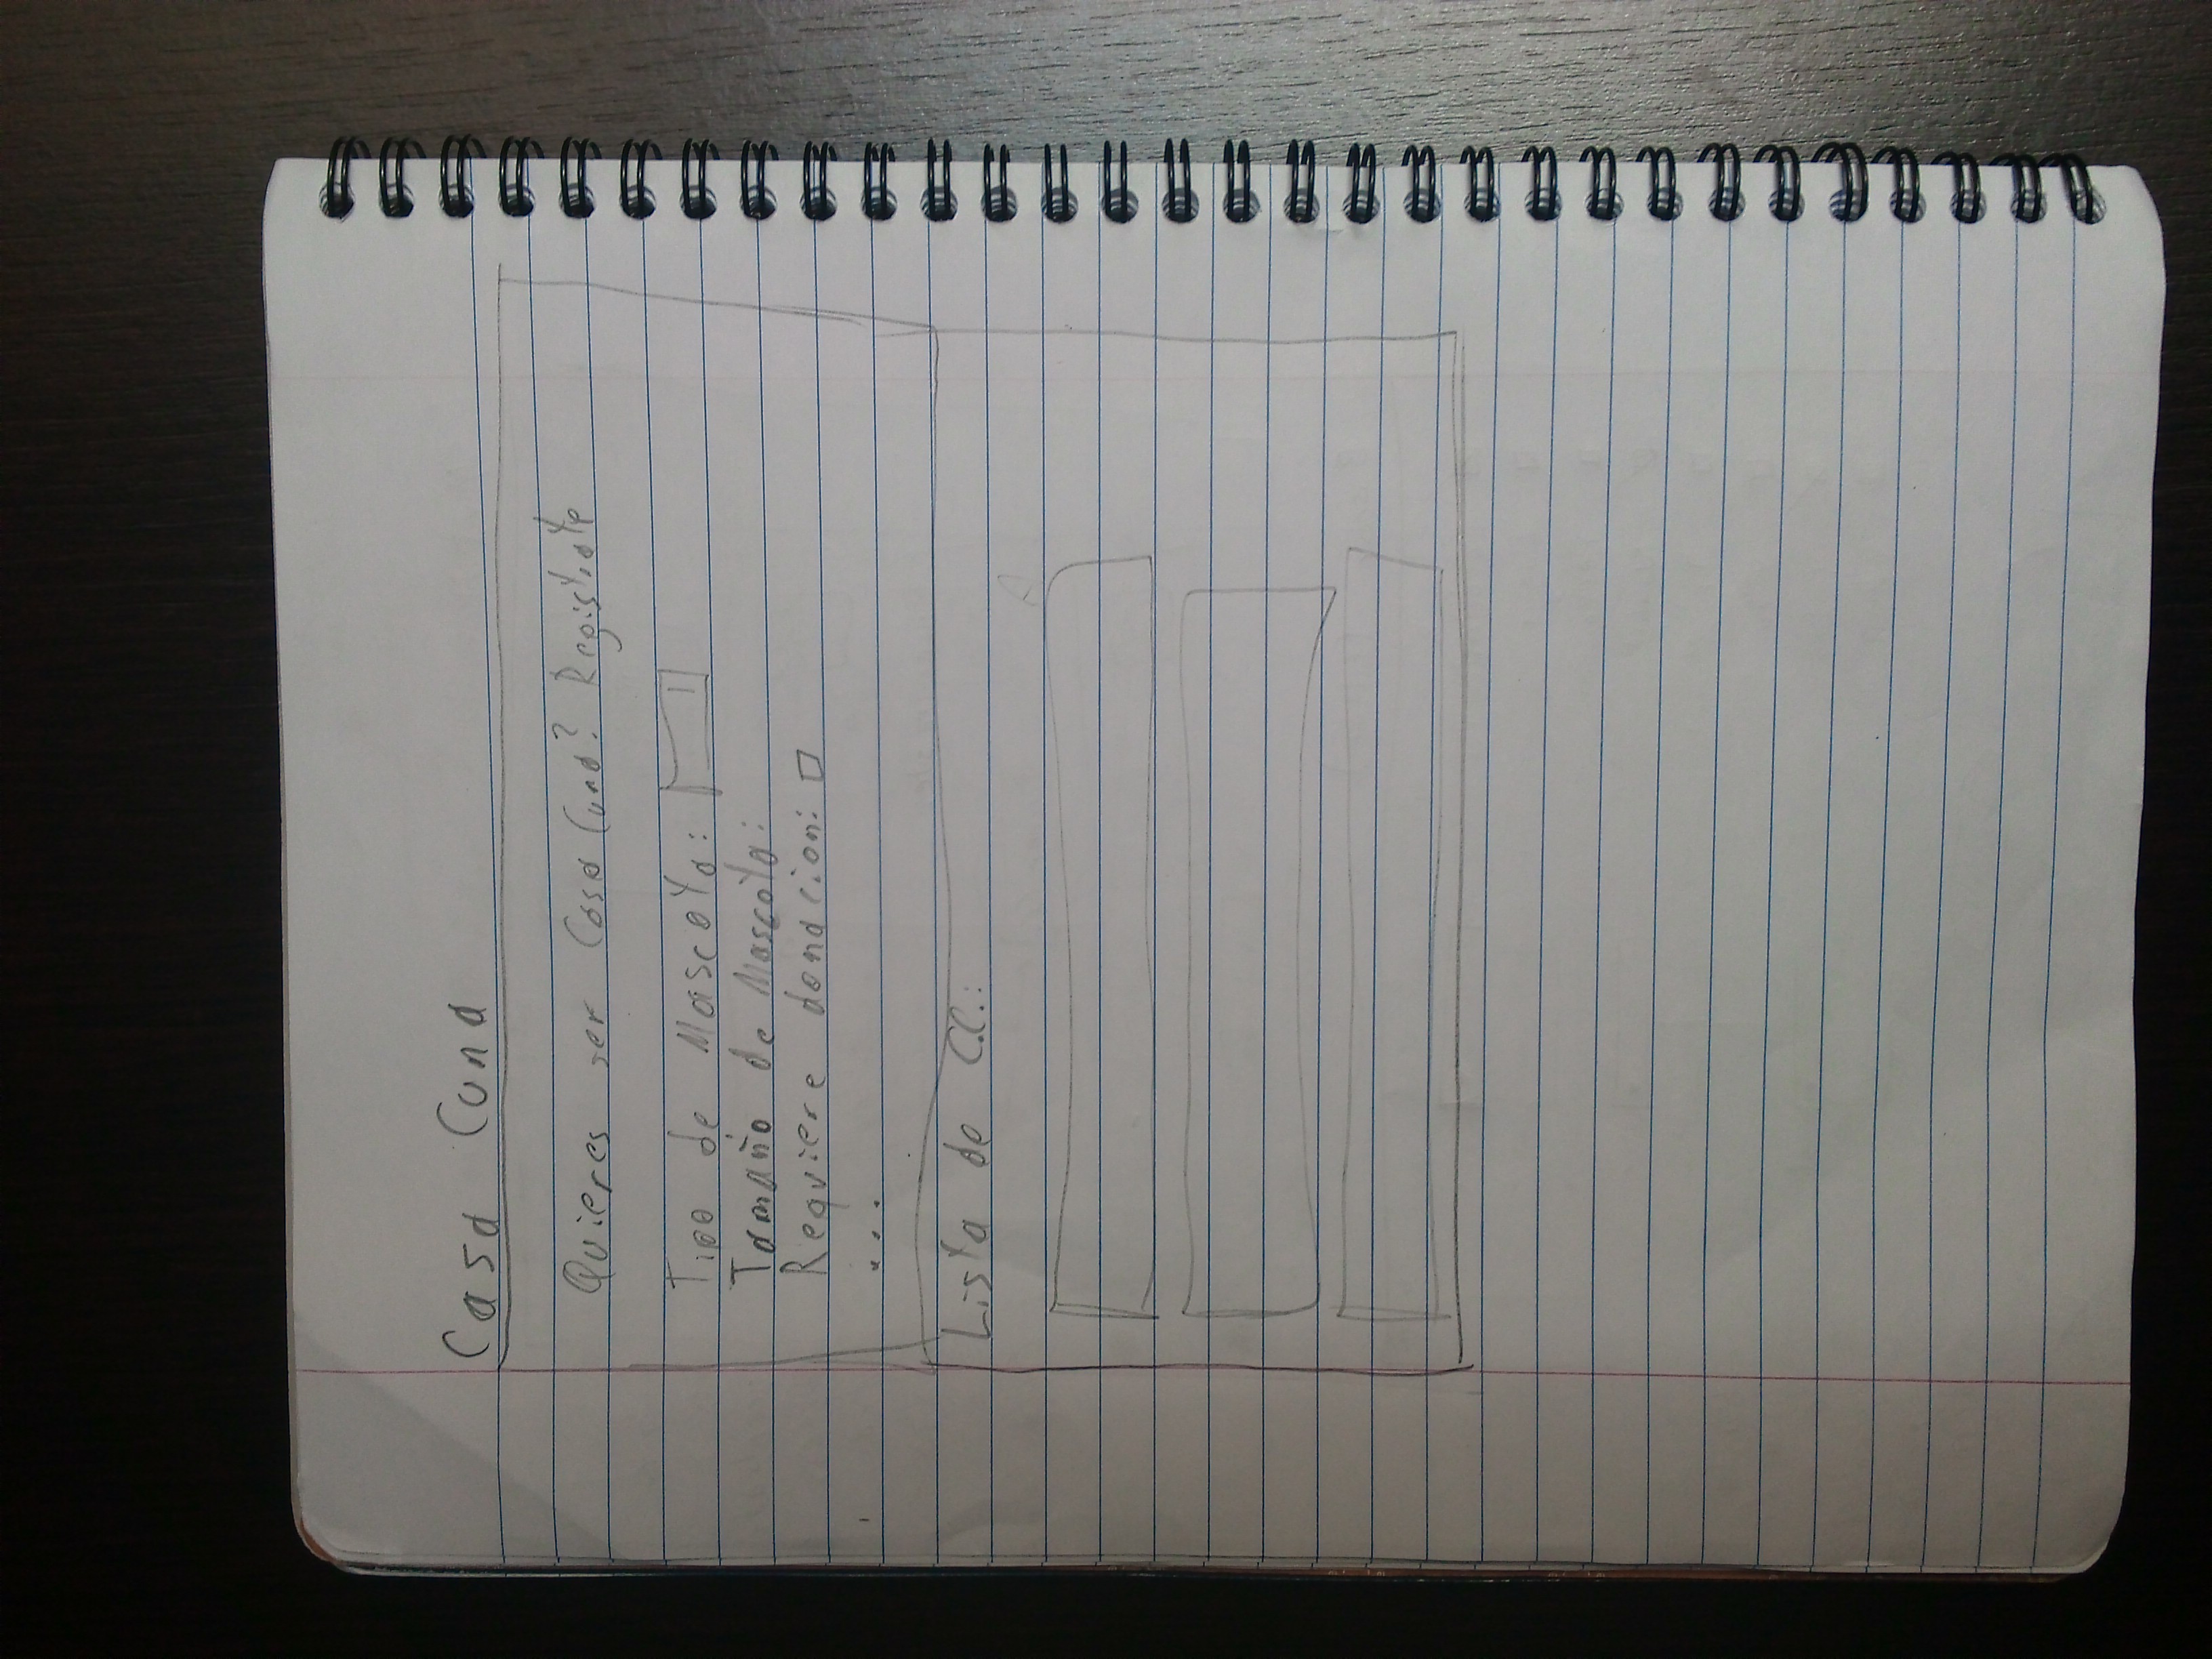 Casa Cuna
Quieres ser Casa Cuna? Registrate
Tipo de Mascota:
Tamaño de Mascota:
Requiere donacion:
...
Lista de C.C.: